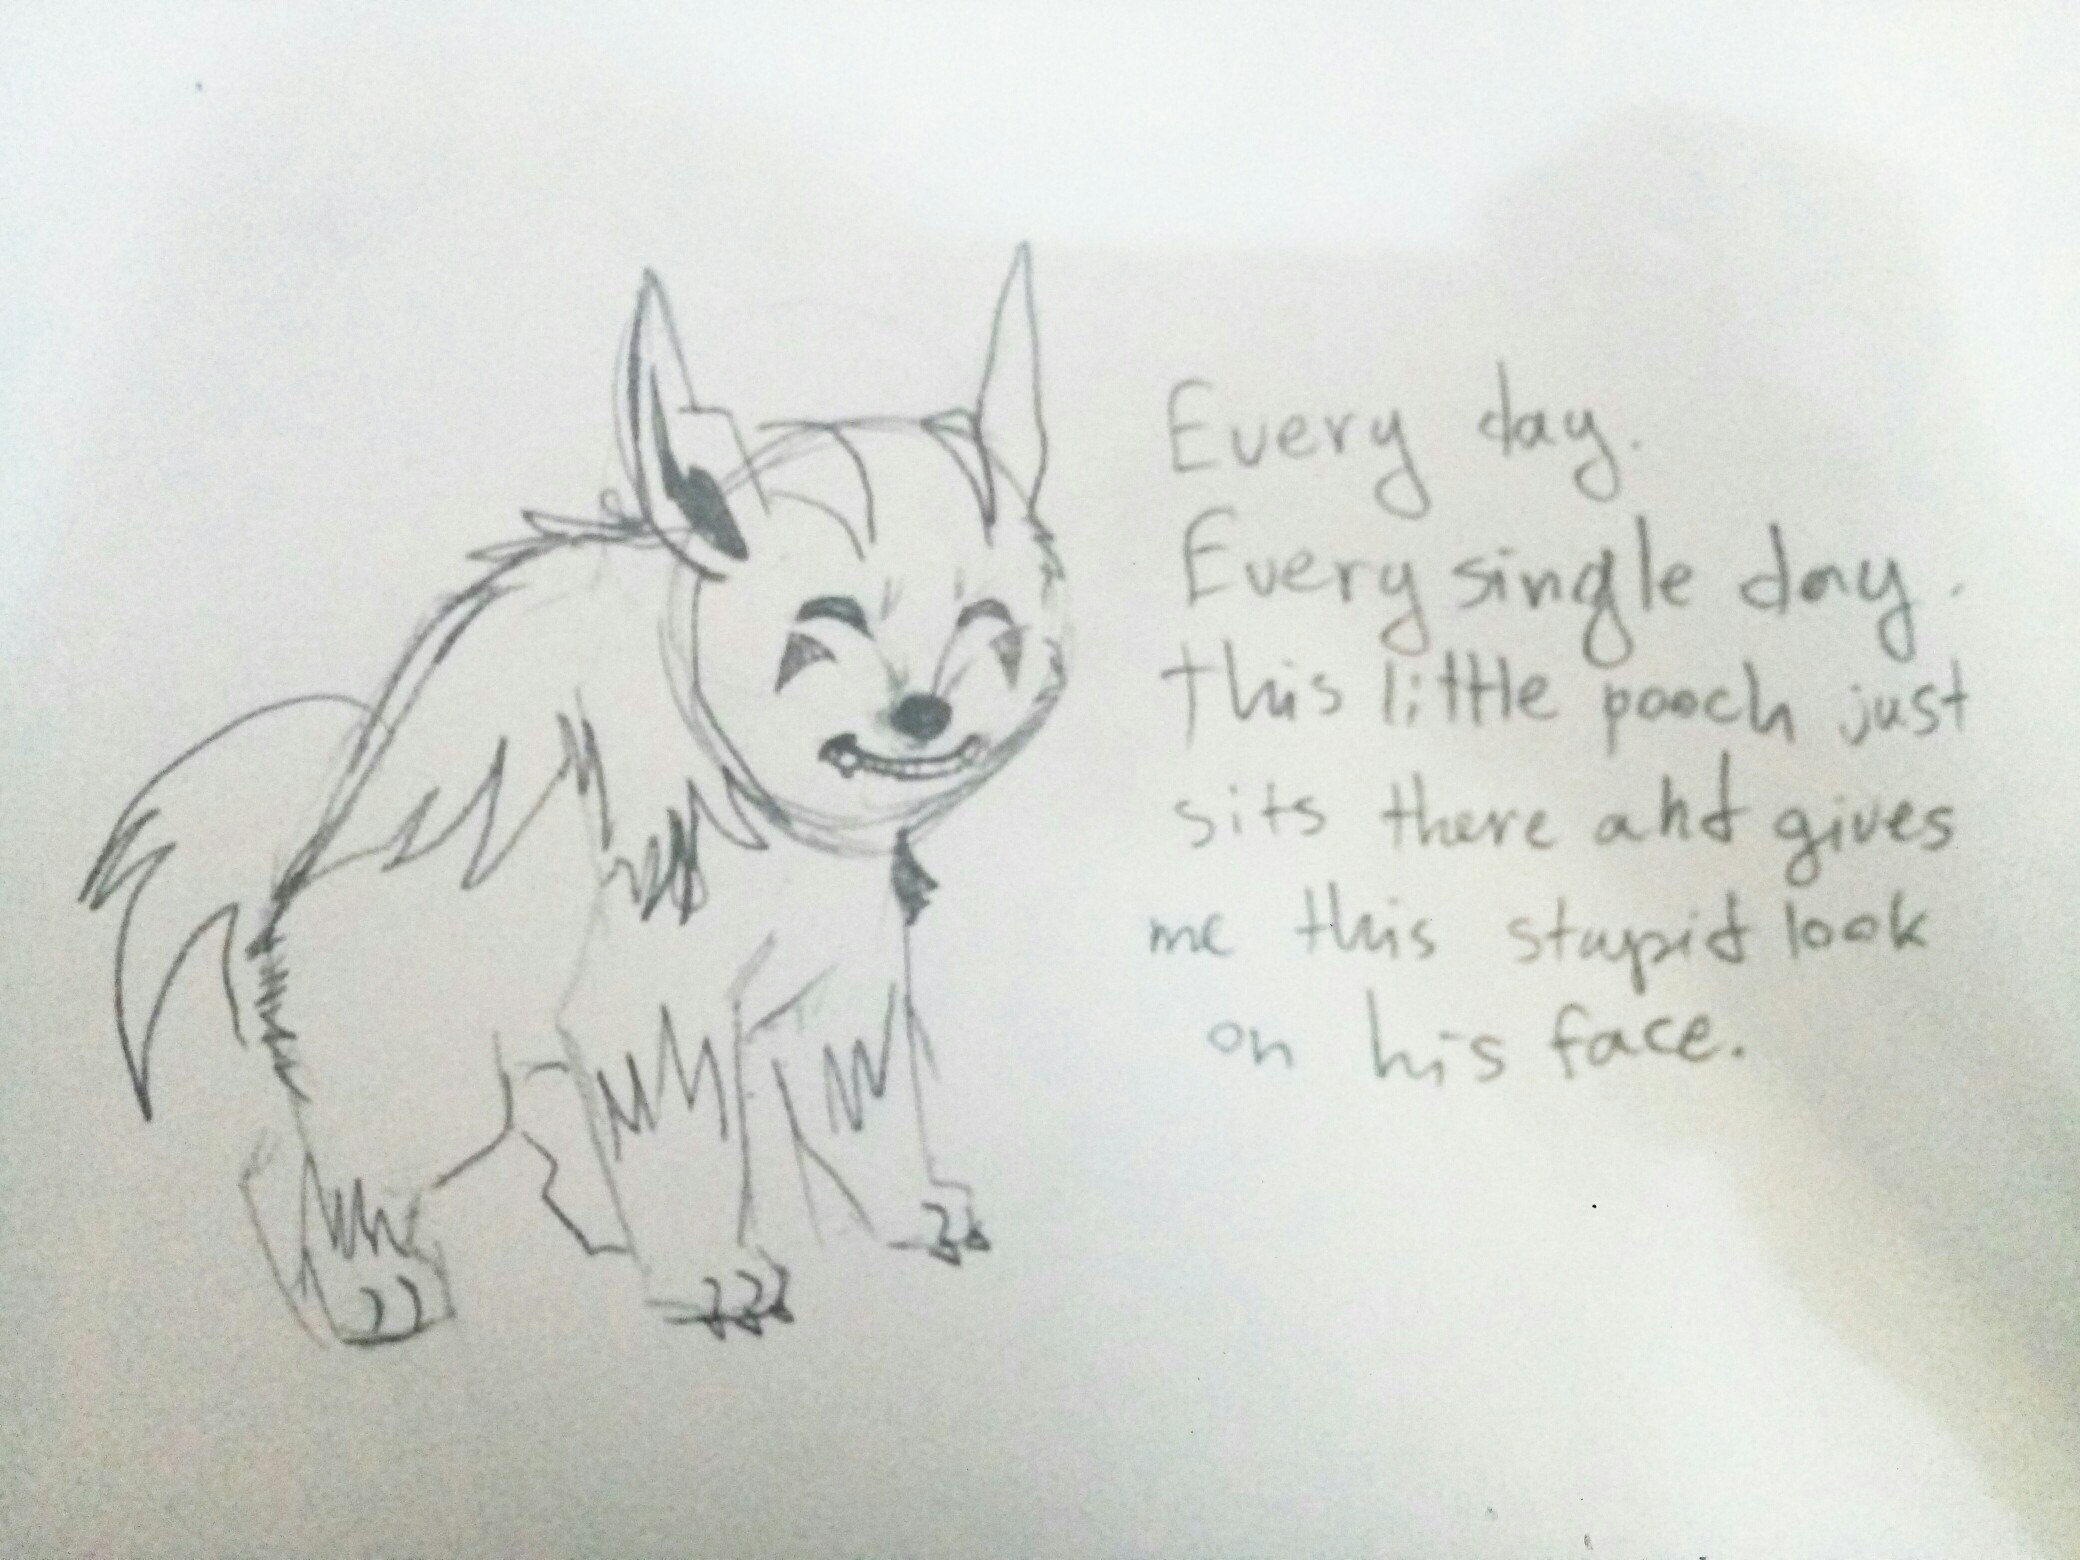 Every day.
Every single day.
this little pooch just
sits there and gives
me this stupid look
on his face.